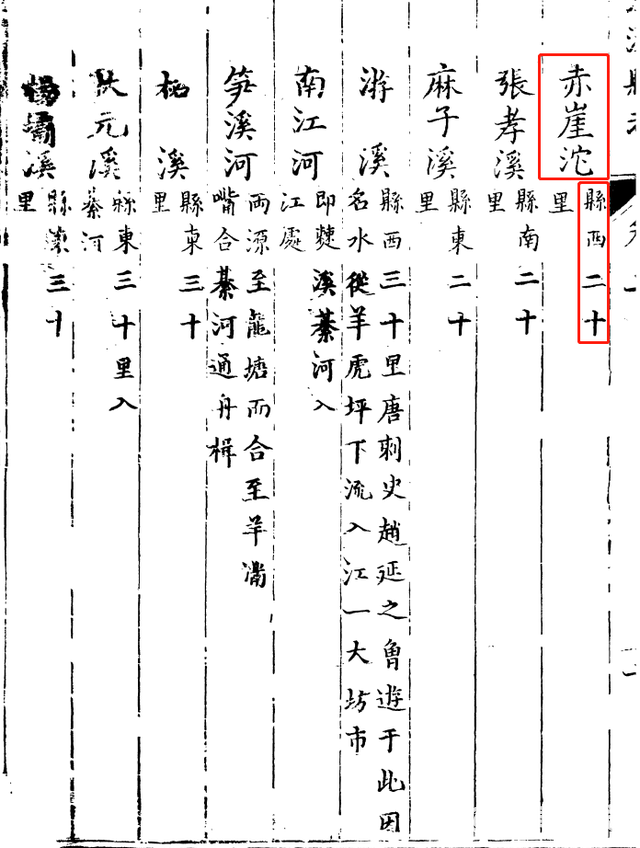 赤崖沱
縣西二十
里
張孝溪
縣南二十
里
麻子溪
縣東二十
里
游溪
縣西三十里唐刺史趙延之曾遊于此因
名水從羊虎坪下流入江一大坊市
南江河
即溪綦河入
江處
笋溪河
兩源至龍塘而合至羊
嘴合綦河通舟楫
溪
縣東三十
里
狀元溪
縣東三十里入
綦河
楊壩溪
縣三十
里